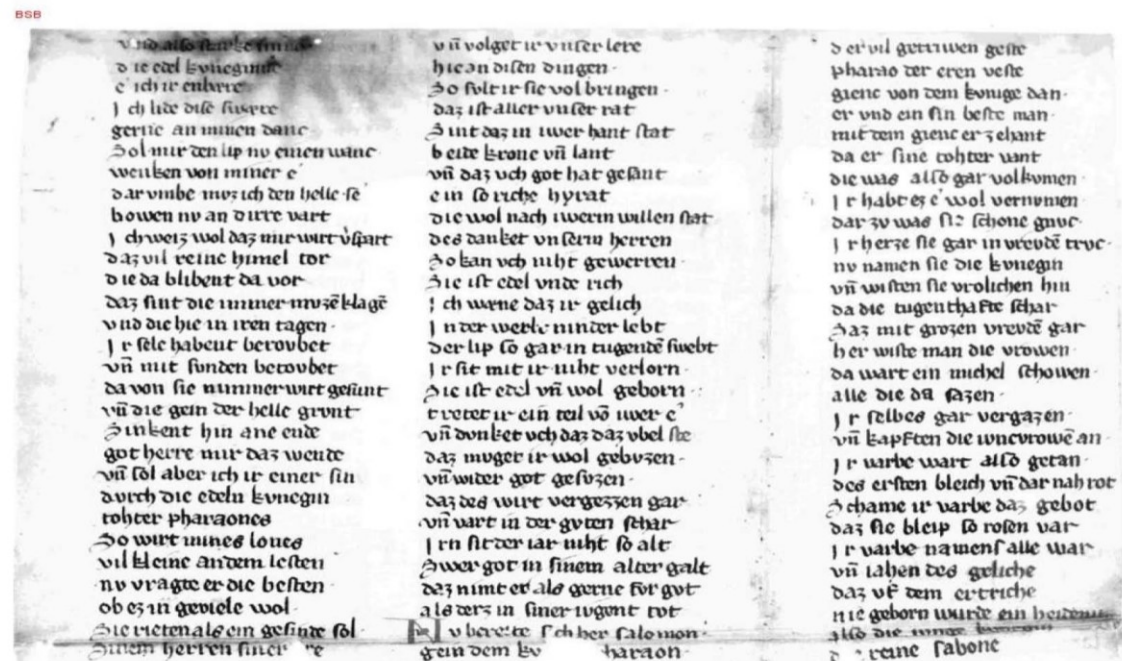 BSB
vnd also starke sinne
die edel kvneginne
e ich ir enbere
Ich lide dise swere
gerne an minen danc
Sol mir den lip nv einen wanc
wenken von miner e
dar vmbe mvz ich den helle se
bowen nv an dirre vart
Ich weiz wol daz mir wirt v̓spart
daz vil reine himel tor
die da blibent da vor
daz sint die immer mvzē klagē
vnd die hie in iren tagen·
Ir sele habent beroubet
vn̄ mit sunden betovbet
da von sie nimmer wirt gesunt
vn̄ die gein der helle grvnt
Sinkent hin ane ende
got herre mir daz wende
vn̄ sol aber ich ir einer sin
dvrch die edeln kvnegin
tohter pharaones
So wirt mines loues
vil kleine an dem lesten
nv vragte er die besten·
ob ez in geviele wol·
Sie rieten als ein gesinde sol·
Sinem herren siner
vn̄ volget ir vnser lere
hie an disen dingen·
So svlt ir sie vol bringen·
daz ist aller vnser rat
Sint daz in iwer hant stat
beide krone vn̄ lant
vn̄ daz vch got hat gesant
ein so riche hyrat
die wol nach iwerm willen stat
des danket vnserm herren
So kan vch niht gewerren·
Sie ist edel vnde rich
Ich wene daz ir gelich
In der werlt ninder lebt
der lip so gar in tugendē swebt
Ir sit mit ir niht verlorn·
Sie ist edel vn̄ wol geborn·
tretet ir ein teil vō iwer e
vn̄ dvnket vch daz daz vbel ste
daz mvget ir wol gebvzen·
vn̄ wider got gesvzen·
daz des wirt vergezzen gar
vn̄ vart in der gvten schar
Irn sit der iar niht so alt
Swer got in sinem alter galt
daz nimt er als gerne fvr gvt
als derz in siner ivgent tvt
Nv bereite sich her salomon·
gein dem kv haraon·
der vil getriwen geste
pharao der eren veste
gienc von dem kvnige dan·
er vnd ein sin beste man·
mit dem gienc er zehant
da er sine tohter vant
die was also gar volkvmen·
Ir habt ez e wol vernvmen·
dar zv was si schone gnvc·
Ir herze sie gar in vrevdē trvc·
nv namen sie die kvnegin
vn̄ wisten sie vrolichen hin
da die tugenthafte schar
Saz mit grozen vrevdē gar
her wiste man die vrowen·
da wart ein michel schowen·
alle die da sazen·
Ir selbes gar vergazen·
vn̄ kapften die ivncvrowē an·
Ir varbe wart also getan·
des ersten bleich vn̄ dar nah rot
Schame ir varbe daz gebot
daz sie bleip so rosen var
Ir varbe namens alle war
vn̄ iahen des geliche
daz vf dem ertriche
nie geborn wurde ein
also die
reine sabone